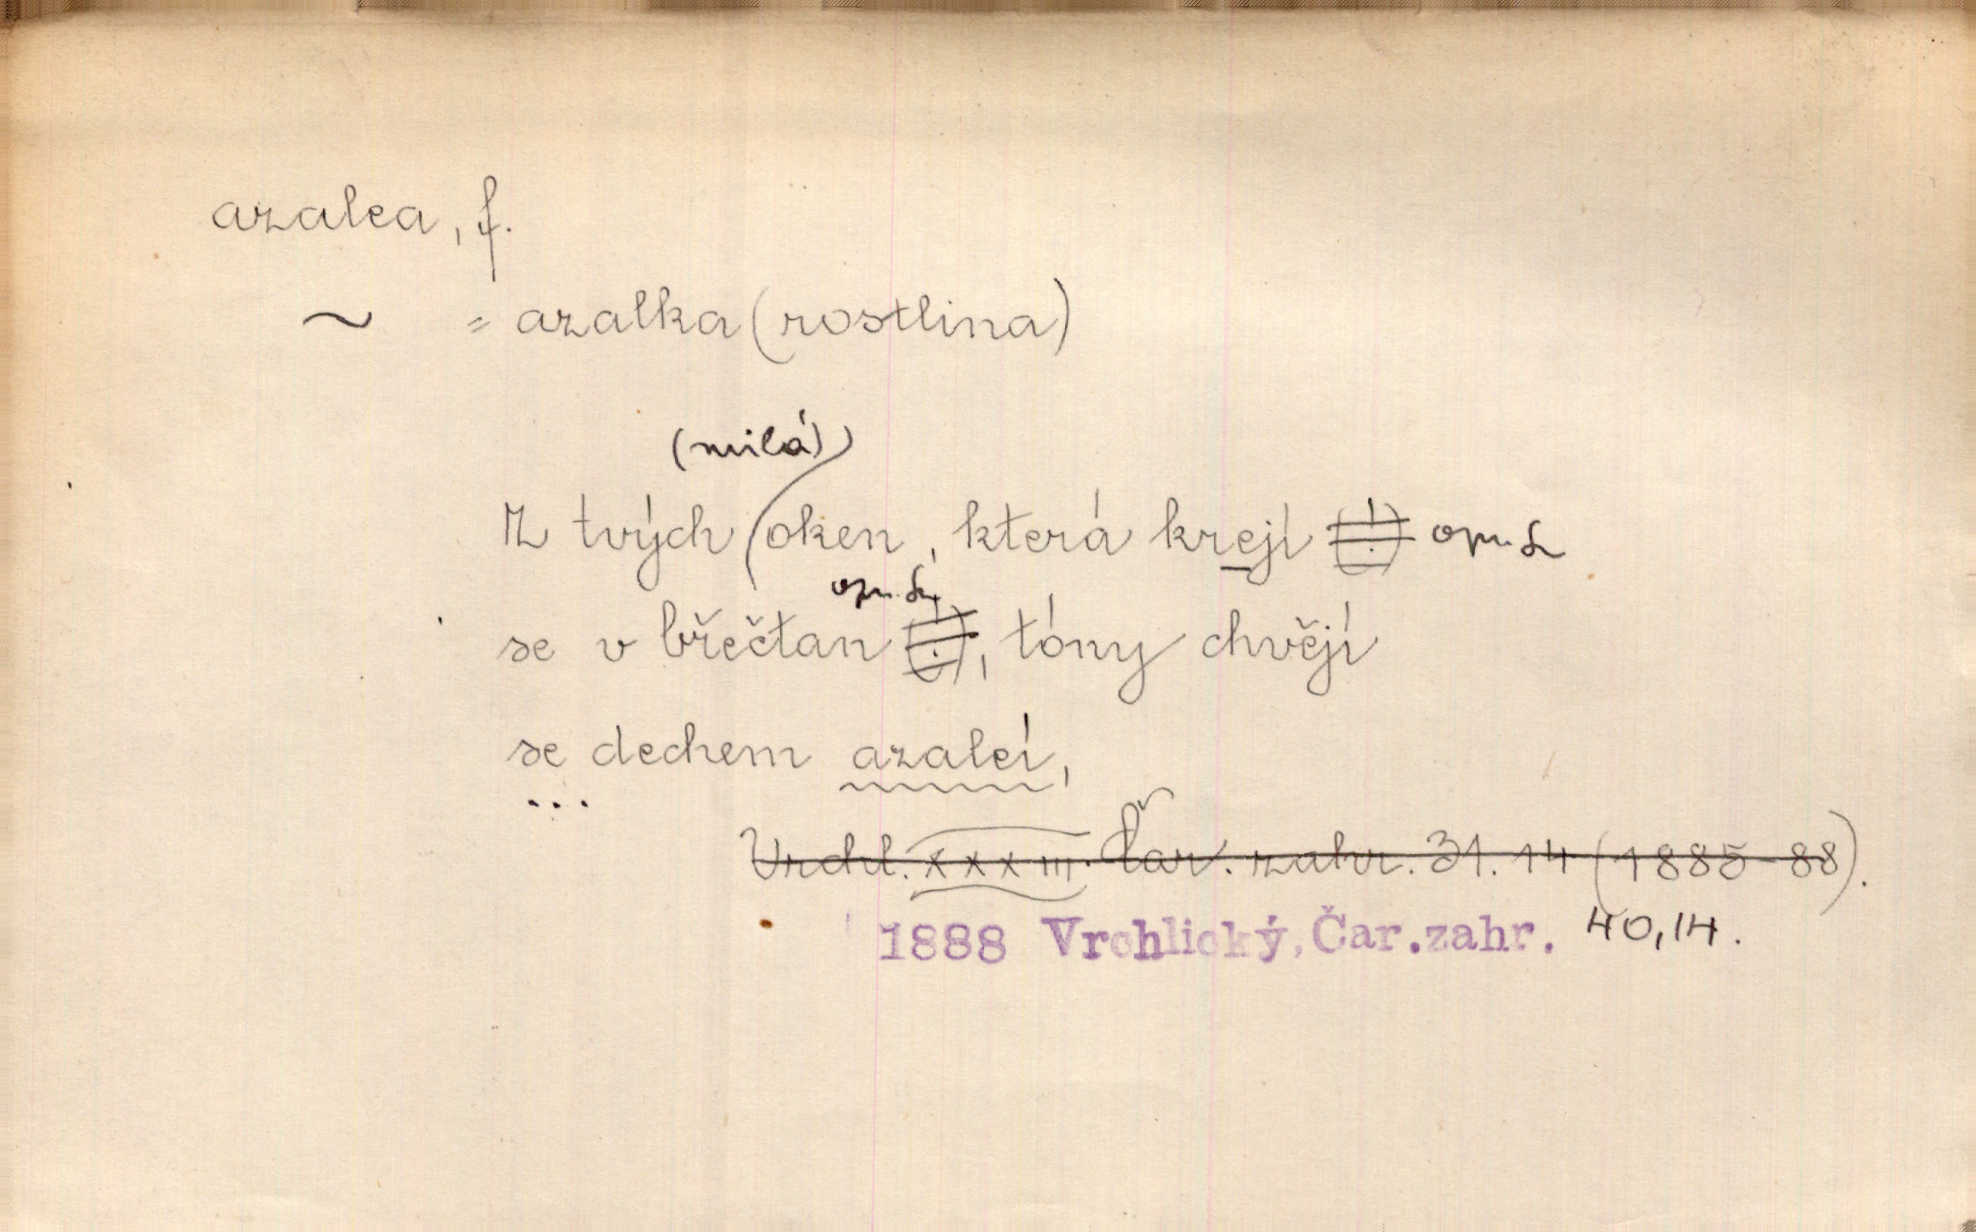 azalea, f.
~ = azalka (rostlina)
(milá)
Z tvých oken, která krejí (!)
se v břečtan (!), tóny chvějí
se dechem azaleí,
...
Vrchl. XXXIII. Čar. zahr. 31. 14 (1885-88).
1888 Vrchlický, Čar.zahr. 40,14.